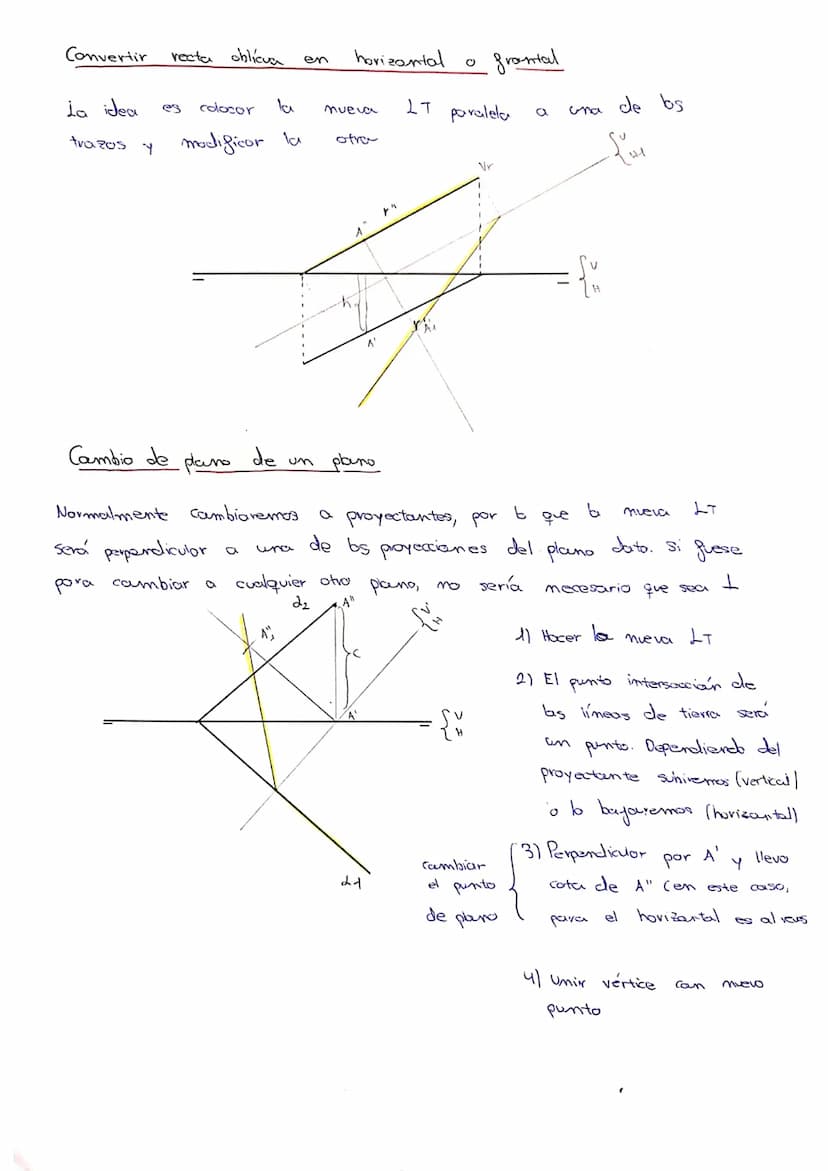 Convertir recta oblícua en horizontal o frontal
La idea es colocar la nueva LT paralela a una de los
trazos y modificar la otra
Vr
{V
H1
r"
A"
{V
H
h
A'
r'
A1
Cambio de plano de un plano
Normalmente cambiaremos a proyectantes, por lo que la nueva LT
será perpendicular a una de las proyecciones del plano dato. Si fuese
para cambiar a cualquier otro plano, no sería necesario que sea ⊥
d2
A"
{V'
H
A"1
C
1) Hacer la nueva LT
2) El punto intersección de
las líneas de tierra será
un punto. Dependiendo del
proyectante subiremos (vertical)
o lo bajaremos (horizontal)
A'
{V
H
d1
cambiar
el punto
de plano
{
3) Perpendicular por A' y llevo
cota de A" (en este caso,
para el horizontal es al revs
4) Unir vértice con nuevo
punto